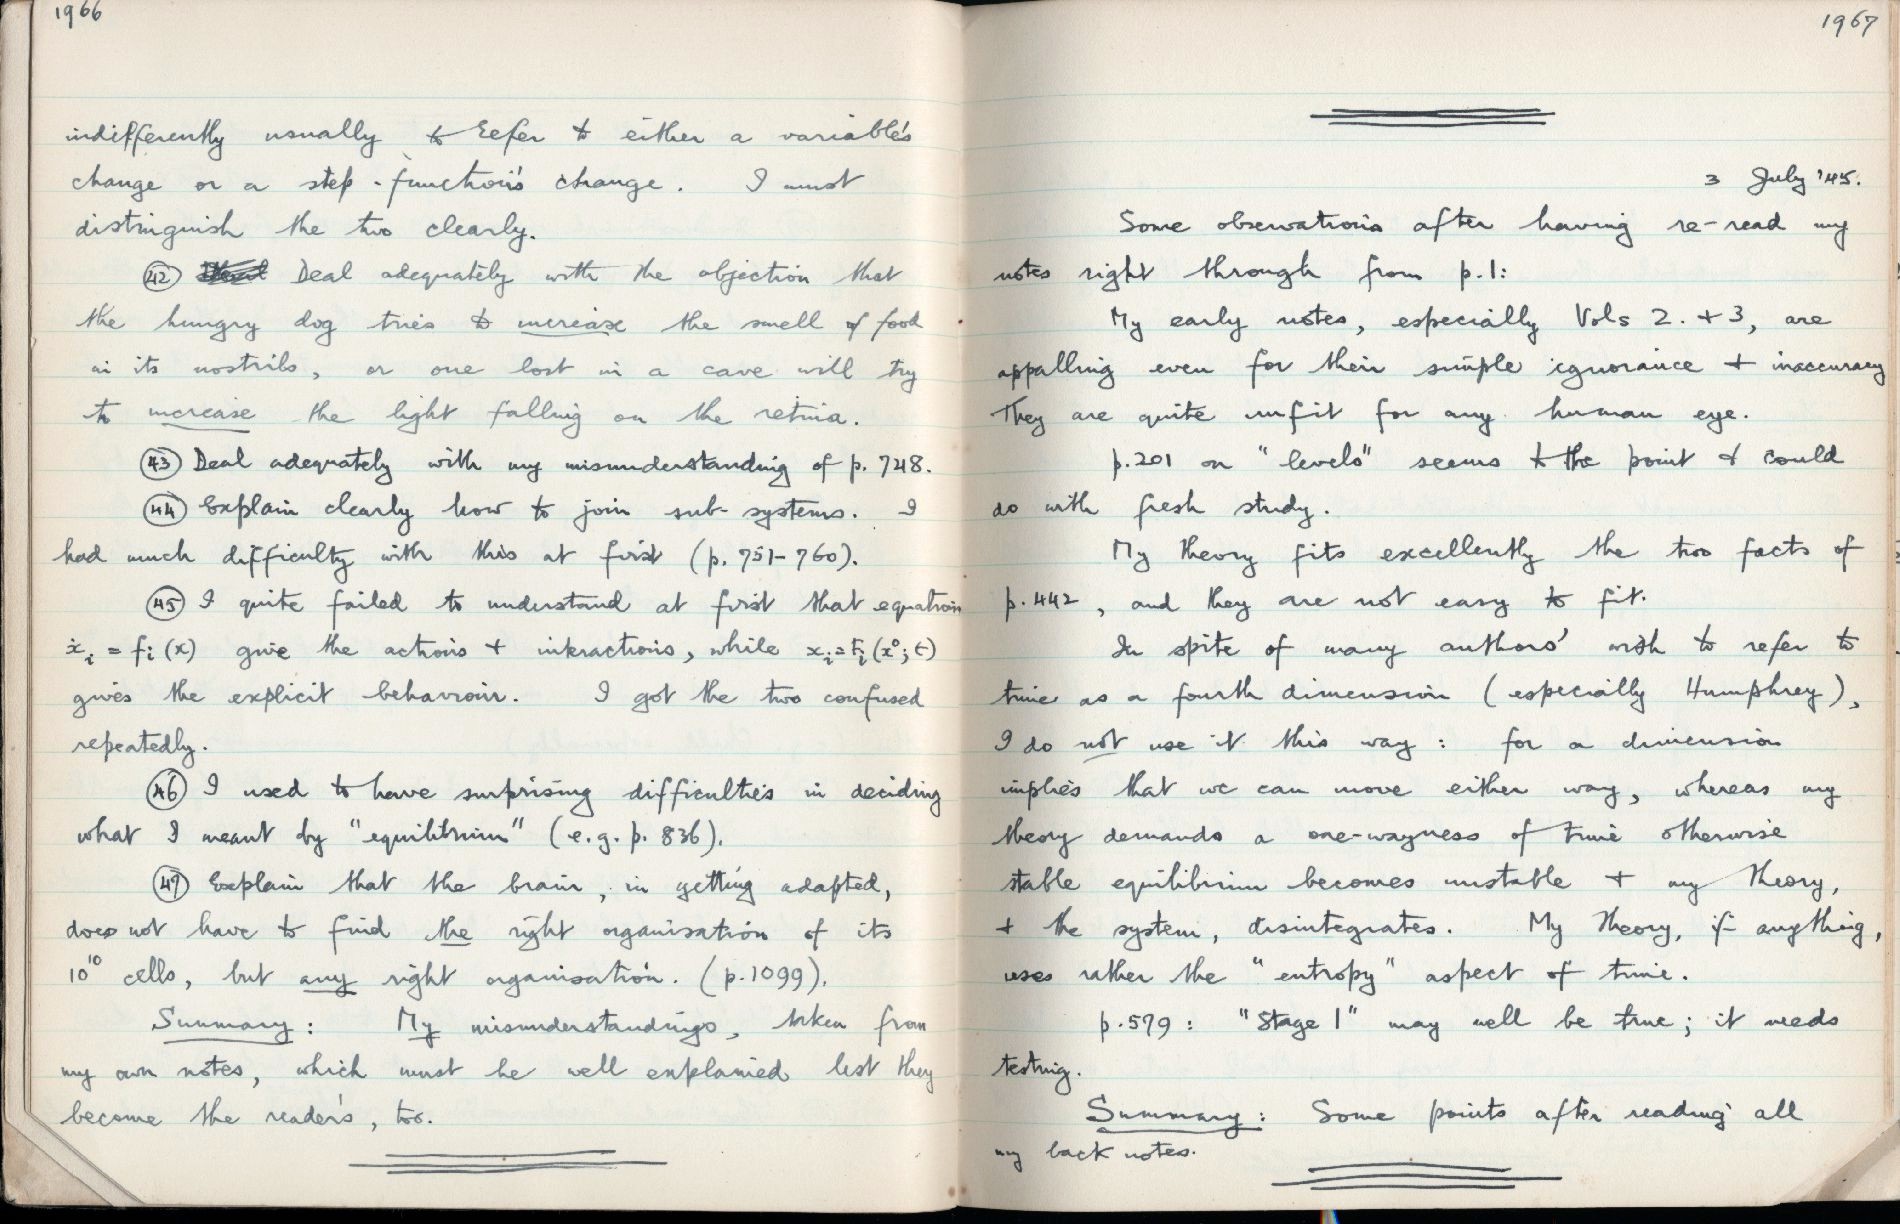 1966
indifferently usually to refer to either a variable's
change or a step-function's change. I must
distinguish the two clearly.
(42) Deal adequately with the objection that
the hungry dog tries to increase the smell of food
in its nostrils, or one lost in a cave will try
to increase the light falling on the retina.
(43) Deal adequately with my misunderstanding of p. 748.
(44) Explain clearly how to join sub-systems. I
had much difficulty with this at first (p. 751-760).
(45) I quite failed to understand at first that equation
ẋᵢ = fᵢ(x) give the actions + interactions, while xᵢ = Fᵢ(x⁰; t)
gives the explicit behaviour. I got the two confused
repeatedly.
(46) I used to have surprising difficulties in deciding
what I meant by "equilibrium" (e.g. p. 836).
(47) Explain that the brain, in getting adapted,
does not have to find the right organisation of its
10¹⁰ cells, but any right organisation. (p. 1099).
Summary: My misunderstandings, taken from
my own notes, which must be well explained lest they
become the reader's, too.
1967
3 July '45.
Some observations after having re-read my
notes right through from p.1:
My early notes, especially Vols 2. + 3, are
appalling even for their simple ignorance + inaccuracy
They are quite unfit for any human eye.
p.201 on "levels" seems to the point & could
do with fresh study.
My theory fits excellently the two facts of
p.442, and they are not easy to fit.
In spite of many authors' wish to refer to
time as a fourth dimension (especially Humphrey),
I do not use it this way: for a dimension
implies that we can move either way, whereas my
theory demands a one-wayness of time otherwise
stable equilibrium becomes unstable + my theory,
+ the system, disintegrates. My theory, if anything,
uses rather the "entropy" aspect of time.
p.579: "Stage 1" may well be true; it needs
testing.
Summary: Some points after reading all
my back notes.